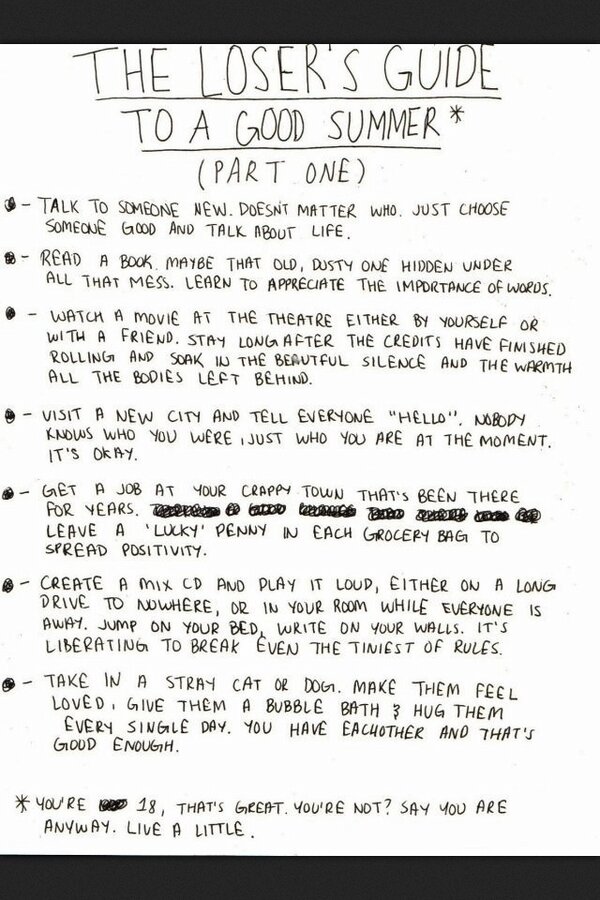 THE LOSER'S GUIDE
TO A GOOD SUMMER*
(PART ONE)
- TALK TO SOMEONE NEW. DOESNT MATTER WHO. JUST CHOOSE
SOMEONE GOOD AND TALK ABOUT LIFE.
- READ A BOOK. MAYBE THAT OLD, DUSTY ONE HIDDEN UNDER
ALL THAT MESS. LEARN TO APPRECIATE THE IMPORTANCE OF WORDS.
- WATCH A MOVIE AT THE THEATRE EITHER BY YOURSELF OR
WITH A FRIEND. STAY LONG AFTER THE CREDITS HAVE FINISHED
ROLLING AND SOAK IN THE BEAUTFUL SILENCE AND THE WARMTH
ALL THE BODIES LEFT BEHIND.
- VISIT A NEW CITY AND TELL EVERYONE "HELLO". NOBODY
KNOWS WHO YOU WERE, JUST WHO YOU ARE AT THE MOMENT.
IT'S OKAY.
- GET A JOB AT YOUR CRAPPY TOWN THAT'S BEEN THERE
FOR YEARS.
LEAVE A 'LUCKY' PENNY IN EACH GROCERY BAG TO
SPREAD POSITIVITY.
- CREATE A MIX CD AND PLAY IT LOUD, EITHER ON A LONG
DRIVE TO NOWHERE, OR IN YOUR ROOM WHILE EVERYONE IS
AWAY. JUMP ON YOUR BED, WRITE ON YOUR WALLS. IT'S
LIBERATING TO BREAK EVEN THE TINIEST OF RULES.
- TAKE IN A STRAY CAT OR DOG. MAKE THEM FEEL
LOVED, GIVE THEM A BUBBLE BATH & HUG THEM
EVERY SINGLE DAY. YOU HAVE EACHOTHER AND THAT'S
GOOD ENOUGH.
* YOU'RE 18, THAT'S GREAT. YOU'RE NOT? SAY YOU ARE
ANYWAY. LIVE A LITTLE.